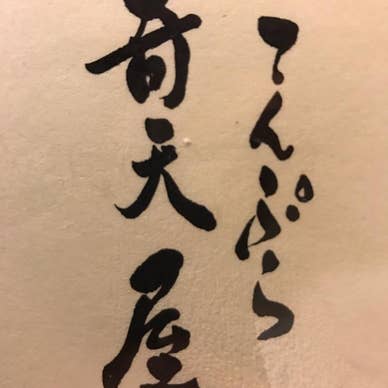 てんぷら
天屋